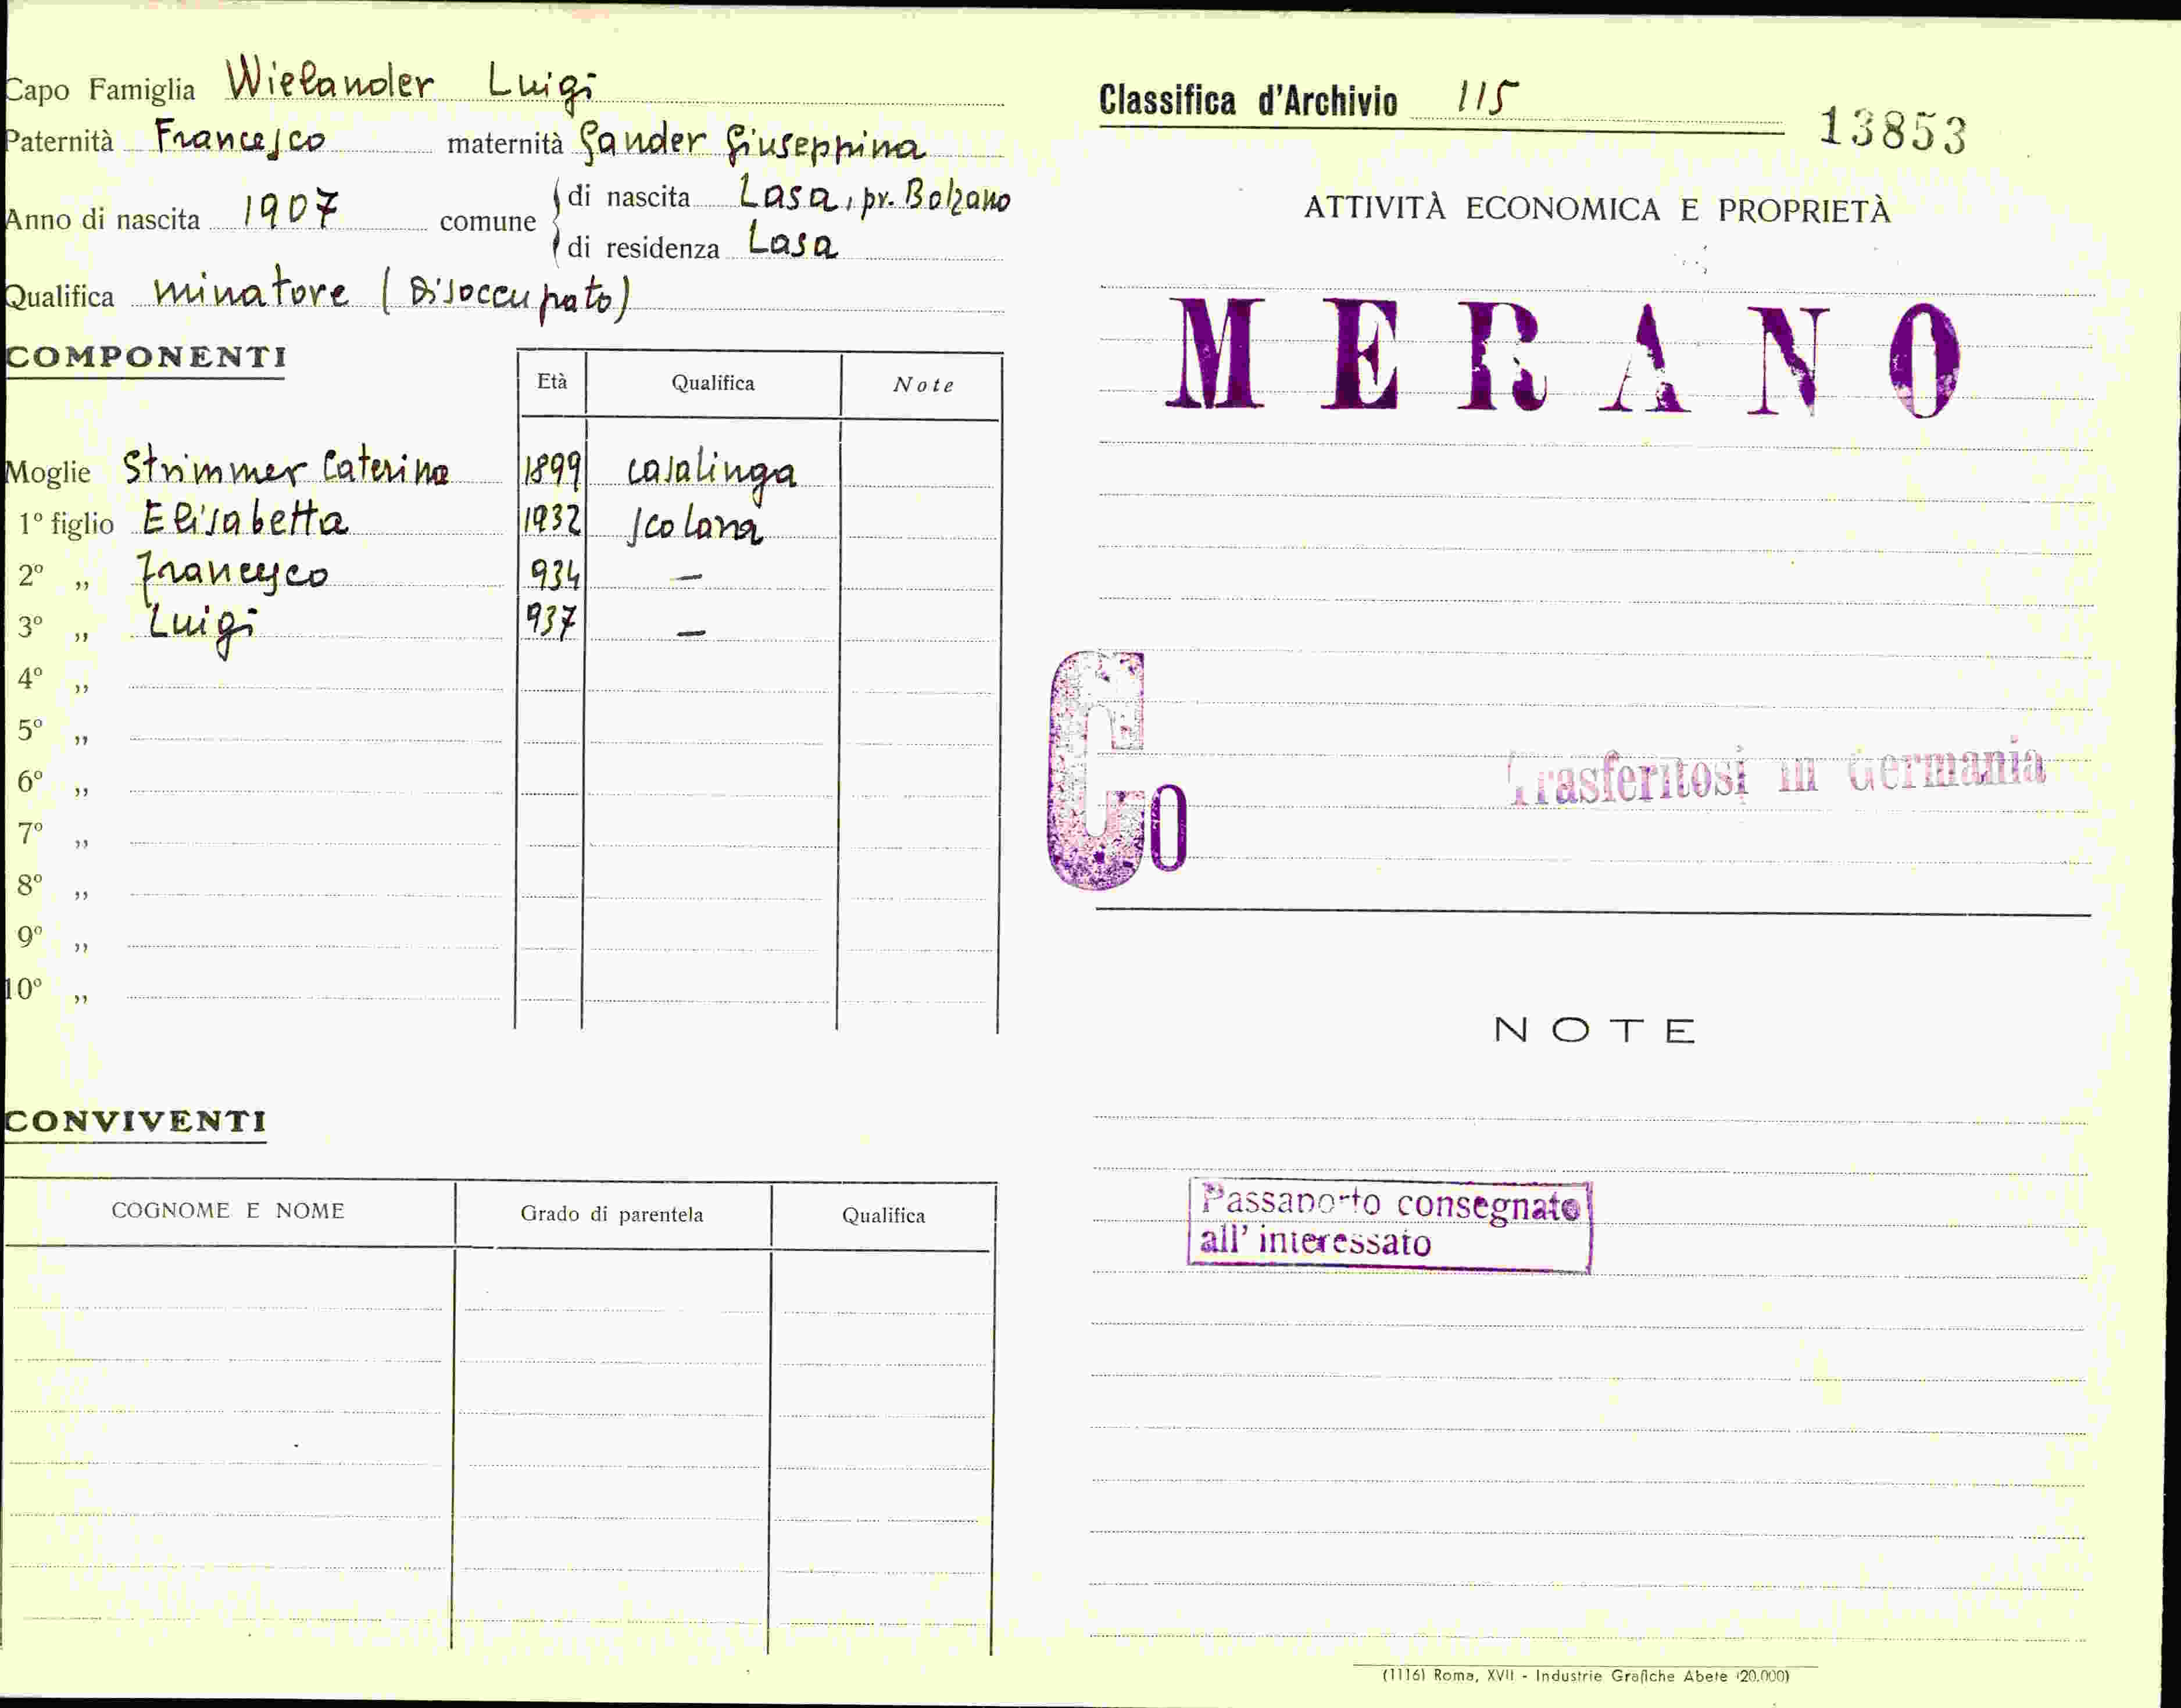 Capo Famiglia Wielander Luigi
Paternità Francesco maternità Gander Giuseppina
Anno di nascita 1907 comune di nascita Lasa, pr. Bolzano
di residenza Lasa
Qualifica minatore (Disoccupato)
COMPONENTI
Età Qualifica Note
Moglie Strimmer Caterina 1899 casalinga
1º figlio Elisabetta 1932 scolara
2º „ Francesco 934 —
3º „ Luigi 937 —
4º „
5º „
6º „
7º „
8º „
9º „
10º „
CONVIVENTI
COGNOME E NOME Grado di parentela Qualifica
Classifica d'Archivio 115
13853
ATTIVITÀ ECONOMICA E PROPRIETÀ
MERANO
Co
Trasferitosi in Germania
NOTE
Passaporto consegnato
all' interessato
(1116) Roma, XVII - Industrie Grafiche Abete (20.000)